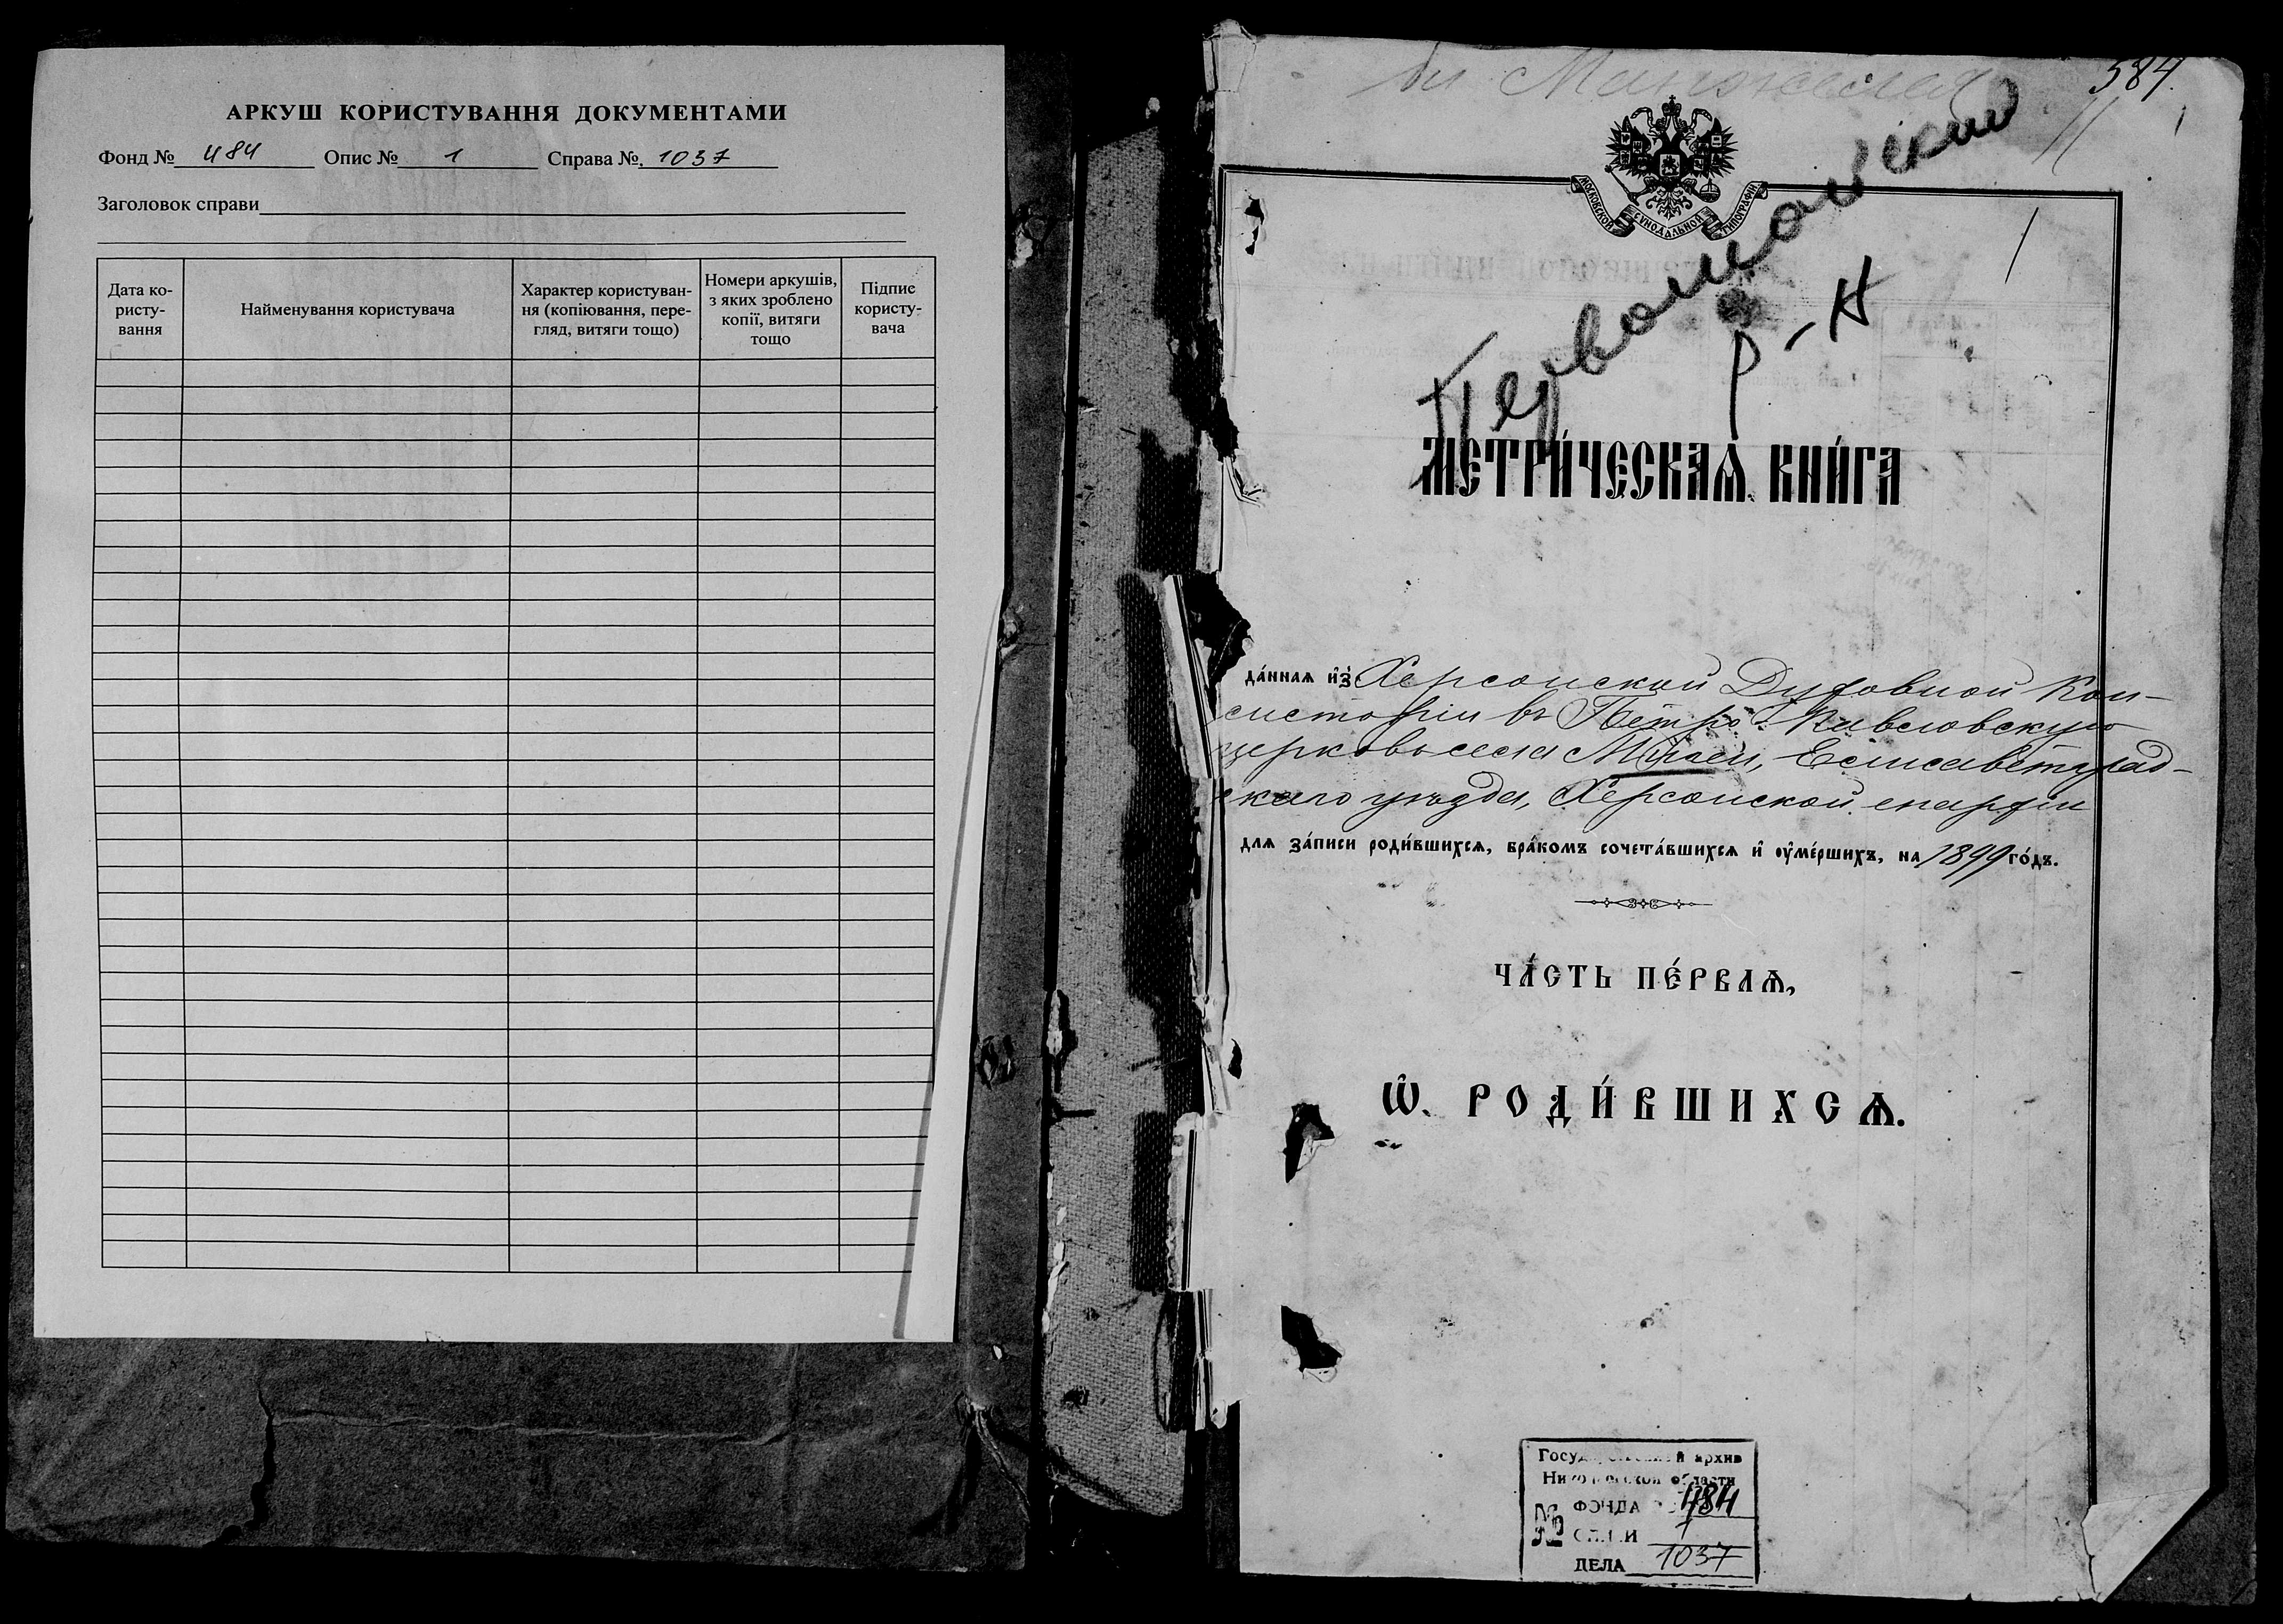 АРКУШ КОРИСТУВАННЯ ДОКУМЕНТАМИ
Фонд № 484 Опис № 1 Справа № 1037
Заголовок справи
Дата ко-
ристу-
вання
Найменування користувача
Характер користуван-
ня (копіювання, пере-
гляд, витяги тощо)
Номери аркушів,
з яких зроблено
копії, витяги
тощо
Підпис
користу-
вача
584.
1
МОСКОВСКОЙ СУНОДАЛЬНОЙ ТИПОГРАФІИ
Первомайский
р-н
1
МЕТРИ́ЧЕСКАѦ КНИ́ГА
да́ннаѧ и҆з̾ Херсонской Духовной Кон-
систоріи въ Петро-Павловскую
церковь села Мигеи, Елисаветград-
скаго уѣзда, Херсонской епархіи
для за́писи роди́вшихсѧ, бра́комъ сочета́вшихсѧ и҆ ᲂу҆ме́ршихъ, на 1899 го́дъ.
ЧА́СТЬ ПЕ́РВАѦ,
Ѽ РОДИ́ВШИХСѦ.
Государственный архив
Николаевской области
№ ФОНДА 484
ОПИСИ 1
ДЕЛА 1037